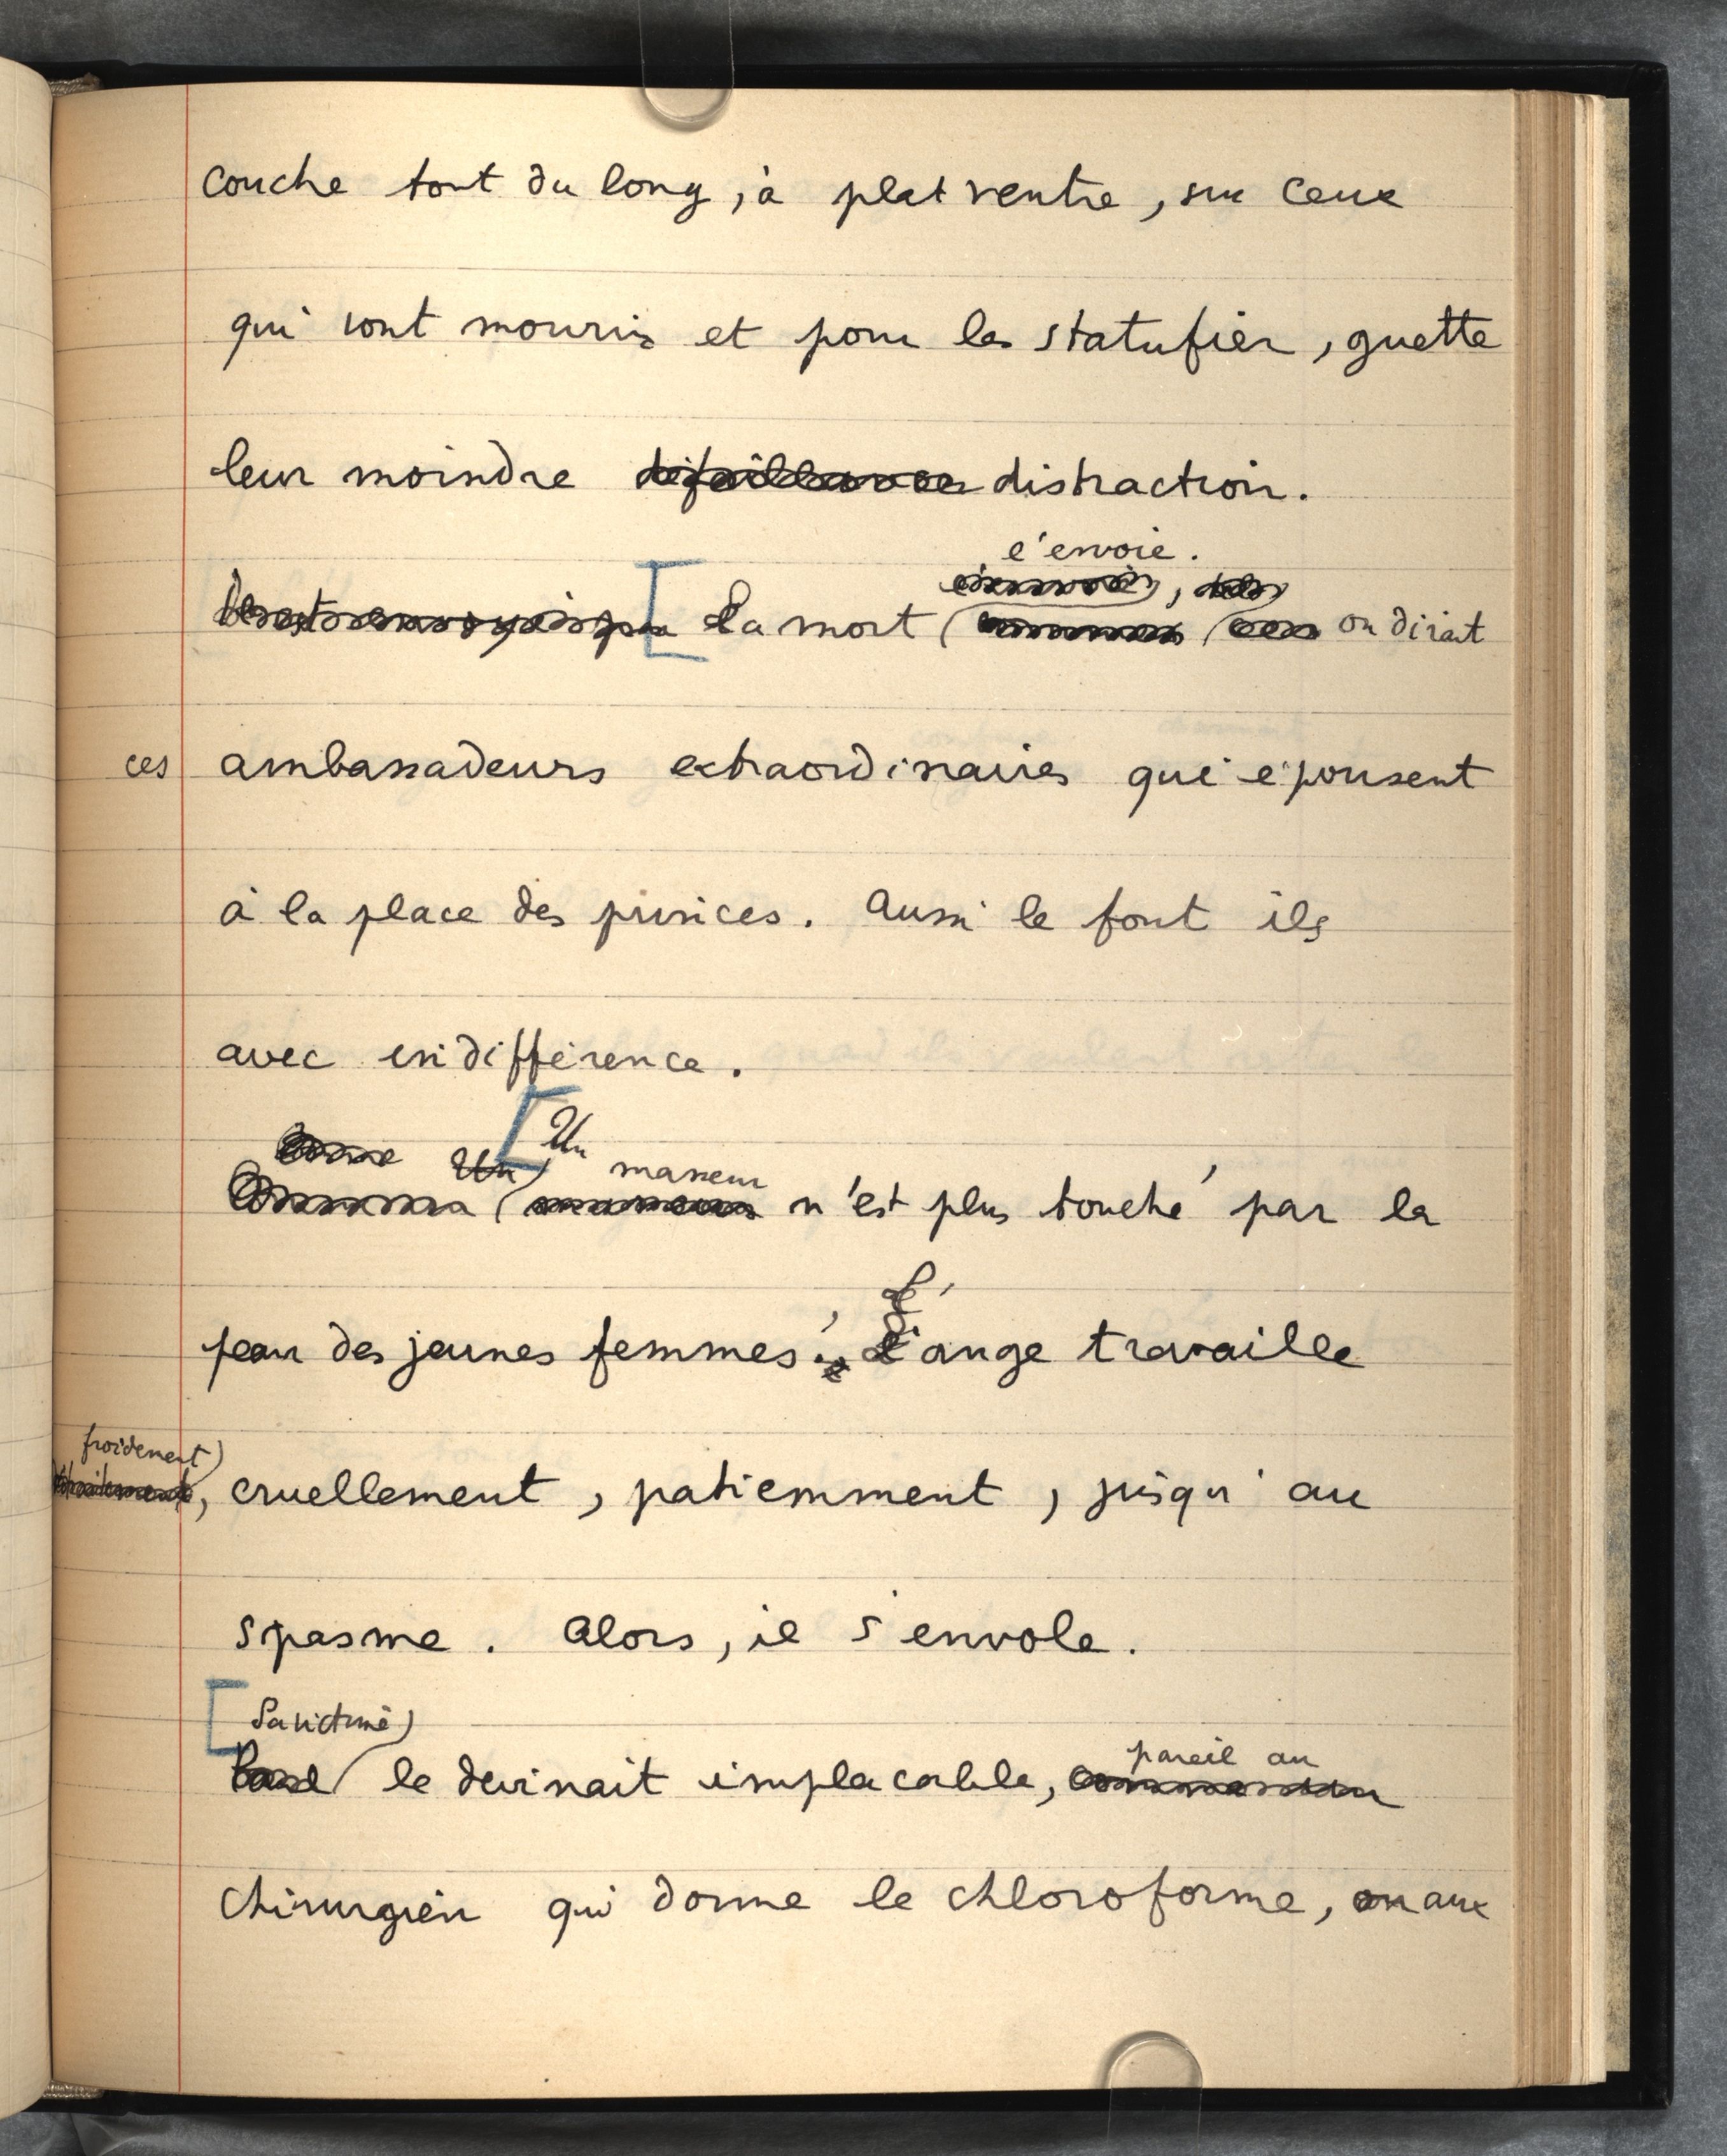 couche tout du long, à plat ventre, sur ceux
qui vont mourir et pour les statufier, guette
leur moindre défaillance distraction.
l'envoie.
La mort on dirait
ces ambassadeurs extraordinaires qui épousent
à la place des princes. Aussi le font ils
avec indifférence.
Un Un masseur
n'est plus touché par la
peau des jeunes femmes. L'ange travaille
froidement
cruellement, patiemment, jusqu'au
spasme. Alors, il s'envole.
Sa victime
le devinait implacable, pareil au
chirurgien qui donne le chloroforme, ou aux